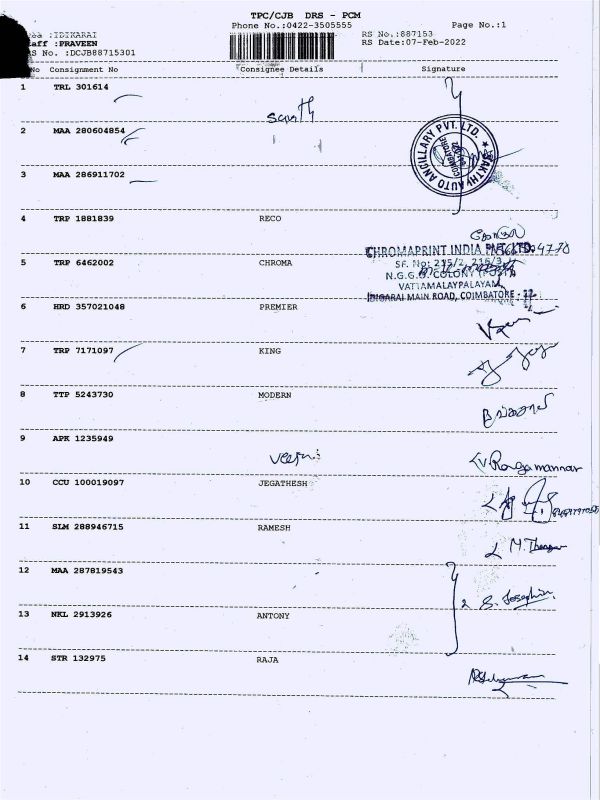 TPC/CJB DRS - PCM
Phone No.:0422-3505555 Page No.:1
:IDIKARAI RS No.:887153
aff :PRAVEEN RS Date:07-Feb-2022
RS No. :DCJB88715301
No Consignment No Consignee Details Signature
1 TRL 301614
2 MAA 280604854
SAKTHI AUTO ANCILLARY PVT. LTD.
COIMBATORE
3 MAA 286911702
4 TRP 1881839 RECO
CHROMAPRINT INDIA PVT. LTD.
5 TRP 6462002 CHROMA
SF. No: 215/2, 216/3
N.G.G.O. COLONY (POST)
VATTAMALAYPALAYAM,
IDIGARAI MAIN ROAD, COIMBATORE - 22
6 HRD 357021048 PREMIER
7 TRP 7171097 KING
8 TTP 5243730 MODERN
9 APK 1235949
V Rangamannar
10 CCU 100019097 JEGATHESH
11 SLM 288946715 RAMESH
12 MAA 287819543
S. Josephin
13 NKL 2913926 ANTONY
14 STR 132975 RAJA